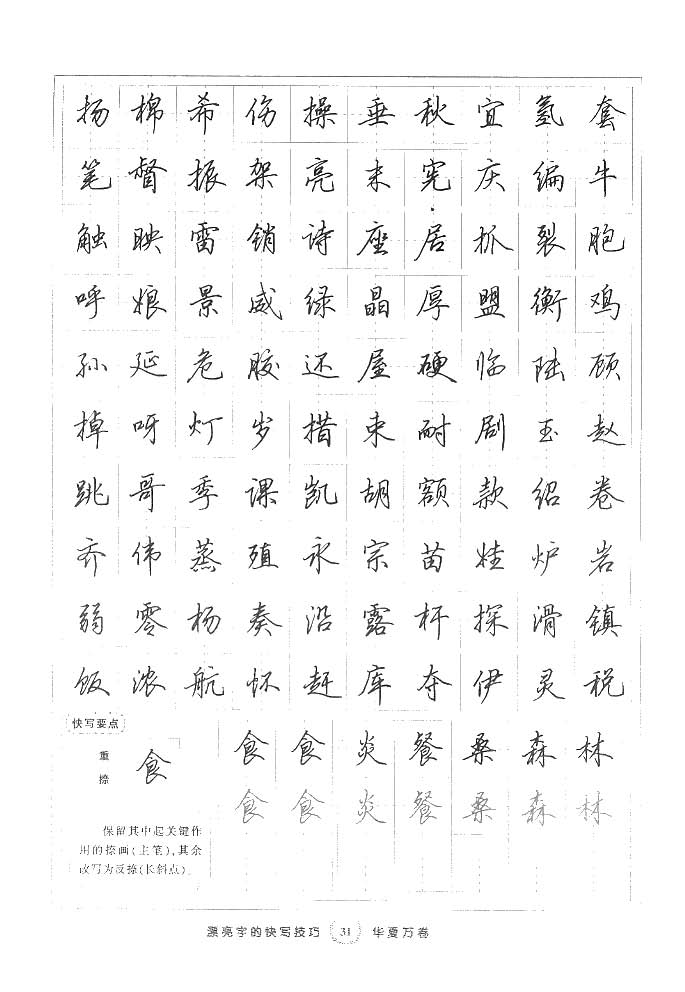 扬棉希伤操垂秋宜氢套
笔督振架亮末宪庆编牛
触映雷销诗座居抓裂胞
呼娘景威绿晶厚盟衡鸡
孙延危胶还屋硬临陆顾
掉呀灯岁措束耐剧玉赵
跳哥季课凯胡额款绍卷
齐伟蒸殖永宗苗炉岩
弱零杨奏沿露杆探滑镇
饭浓航怀赶库夺伊灵税
快写要点
重捺
食
食食炎餐桑森林
食食炎餐桑森林
保留其中起关键作
用的捺画(主笔),其余
改写为反捺(长斜点)。
漂亮字的快写技巧 31 华夏万卷